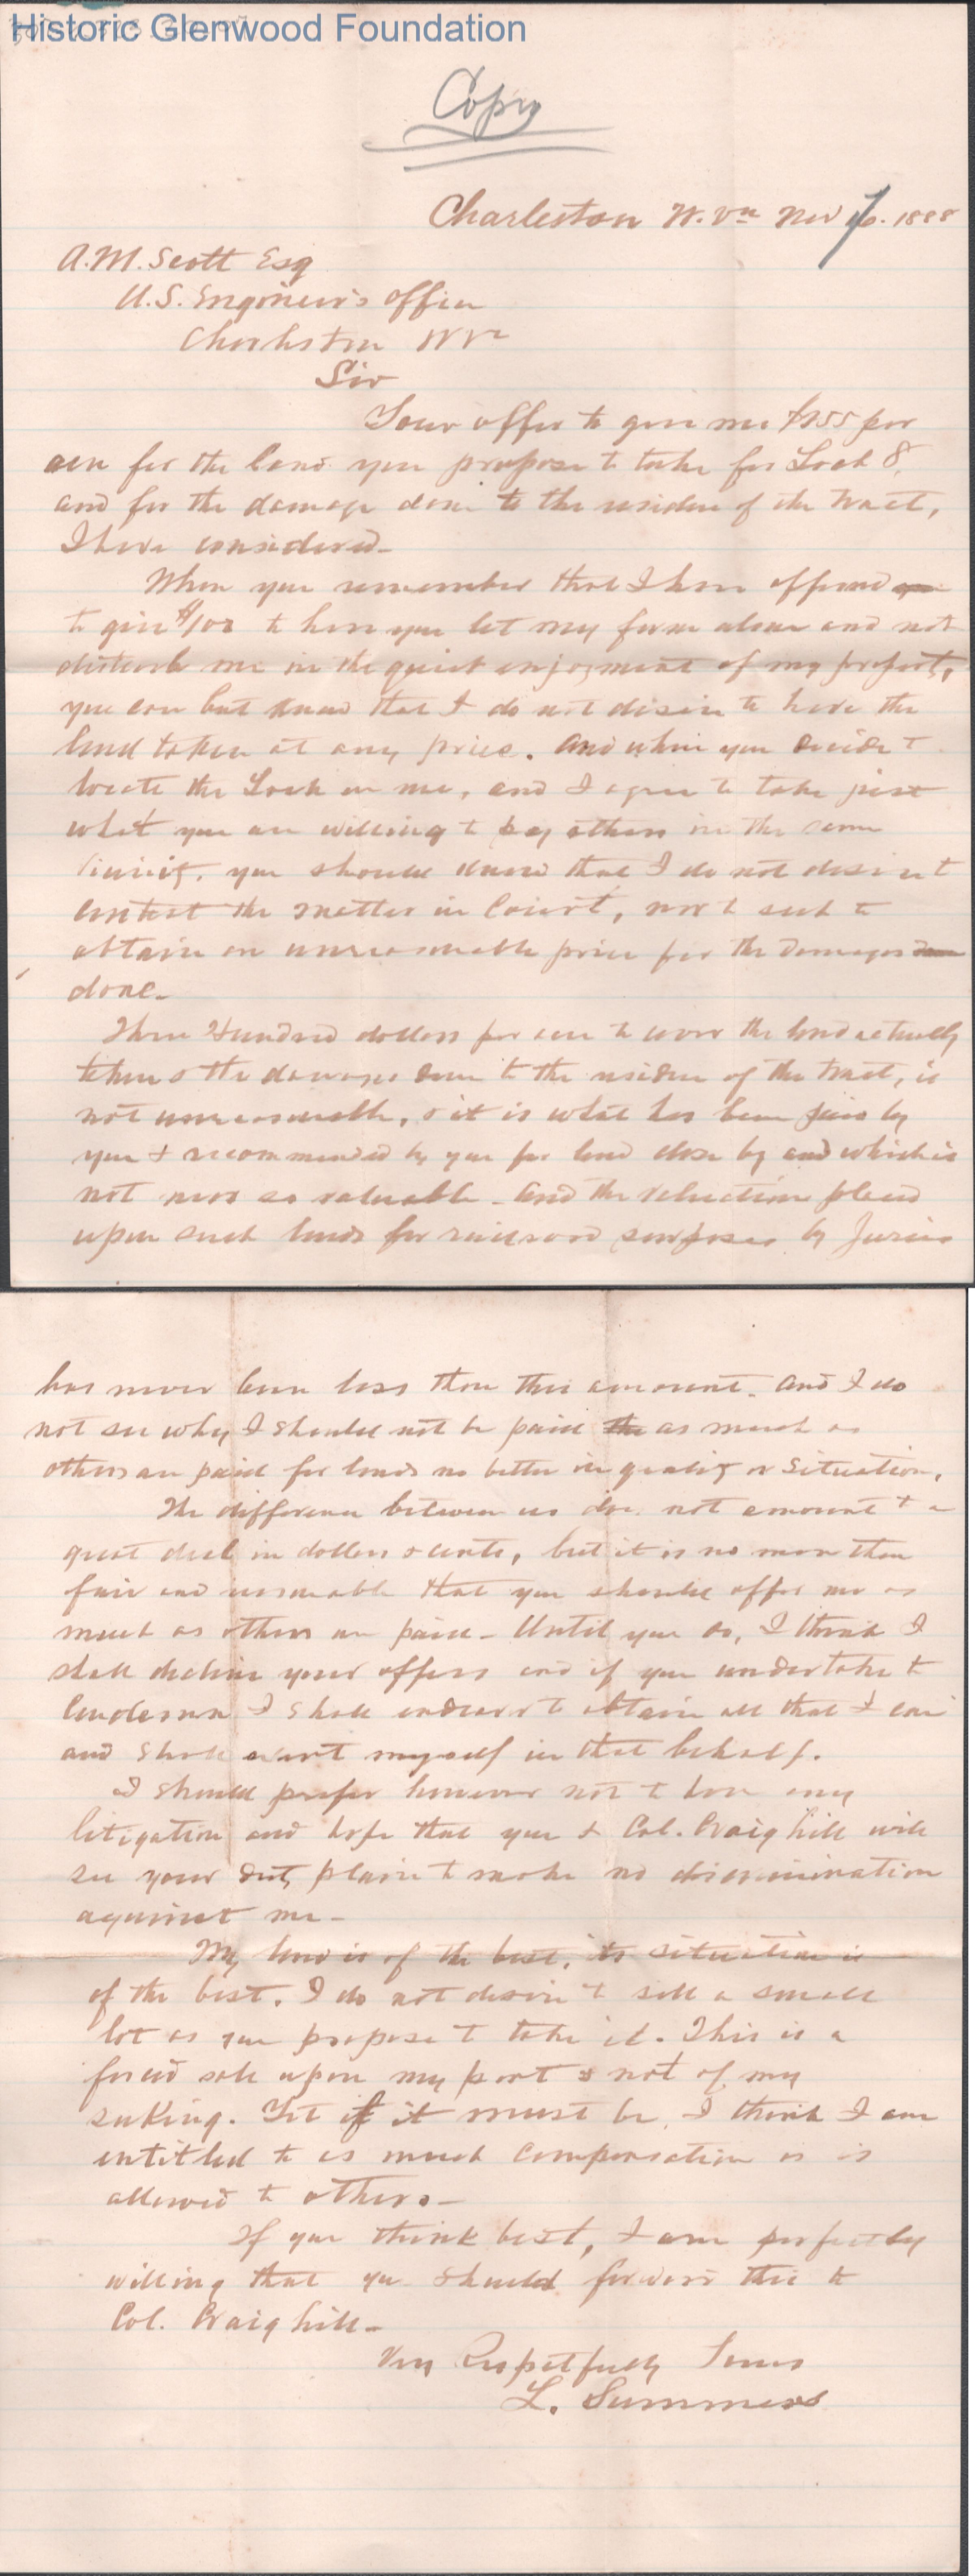 Historic Glenwood Foundation
Copy
Charleston W. Va Nov 16. 1888
A. M. Scott Esq
U. S. Engineer's Office
Charleston W Va
Sir
Your offer to give me $255 per
acre for the land you propose to take for Lock 8,
and for the damage done to the residue of the tract,
I have considered -
When you remember that I have offered
to give $100 to have you let my farm alone and not
disturb me in the quiet enjoyment of my property,
you can but know that I do not desire to have the
land taken at any price. And when you decide to
locate the Lock on me, and I agree to take just
what you are willing to pay others in the same
vicinity, you should know that I do not desire to
contest the matter in Court, nor to seek to
obtain an unreasonable price for the damages
done -
Three Hundred dollars per acre to cover the land actually
taken & the damages done to the residue of the tract, is
not unreasonable, & it is what has been paid by
you & recommended by you for land close by and which is
not near so valuable - And the valuation placed
upon such lands for railroad purposes by Juries
has never been less than this amount. And I do
not see why I should not be paid the as much as
others are paid for lands no better in quality or situation.
The difference between us does not amount to a
great deal in dollars & cents, but it is no more than
fair and reasonable that you should offer me as
much as others are paid - Until you do, I think I
shall decline your offers and if you undertake to
Condemn I shall endeavor to obtain all that I can
and shall exert myself in that behalf.
I should prefer however not to have any
litigation and hope that you & Col. Craighill will
see your duty plain to make no discrimination
against me -
My land is of the best, its situation is
of the best. I do not desire to sell a small
lot as you propose to take it. This is a
forced sale upon my part & not of my
seeking. Yet if it must be, I think I am
entitled to as much compensation as is
allowed to others. -
If you think best, I am perfectly
willing that you should forward this to
Col. Craighill -
Very Respetfully Yours
L. Summers